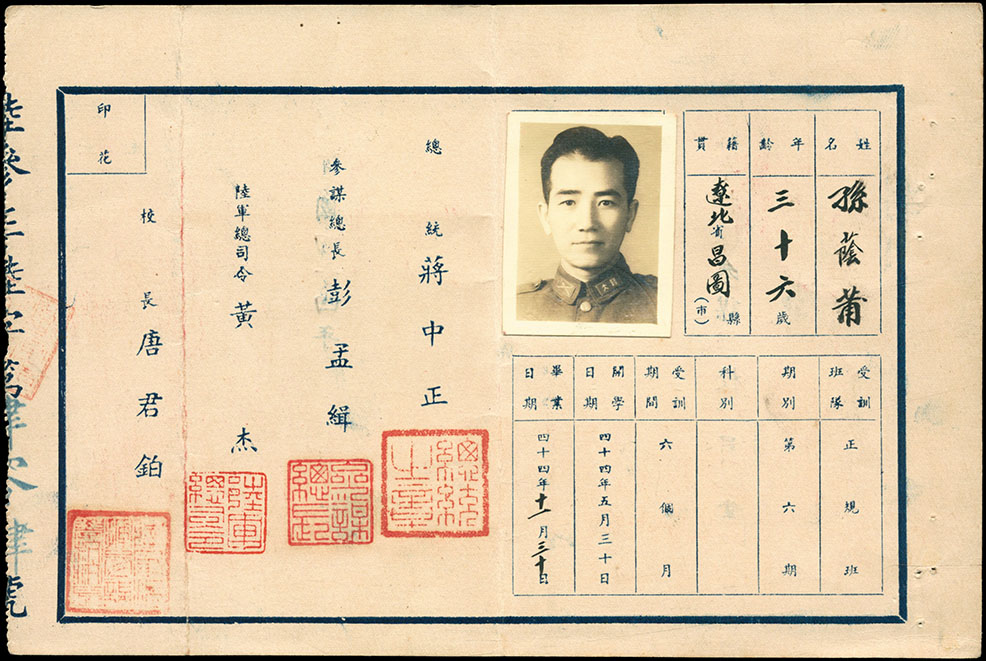 姓名
孫蔭莆
年齡
三十六歲
籍貫
遼北省昌圖縣(市)
受訓班隊
正規班
期別
第六期
科別
受訓期間
六個月
開學日期
四十四年五月三十日
畢業日期
四十四年十一月三十日
總統 蔣中正
總統之章
參謀總長 彭孟緝
陸軍總司令 黃杰
校長 唐君鉑
印花